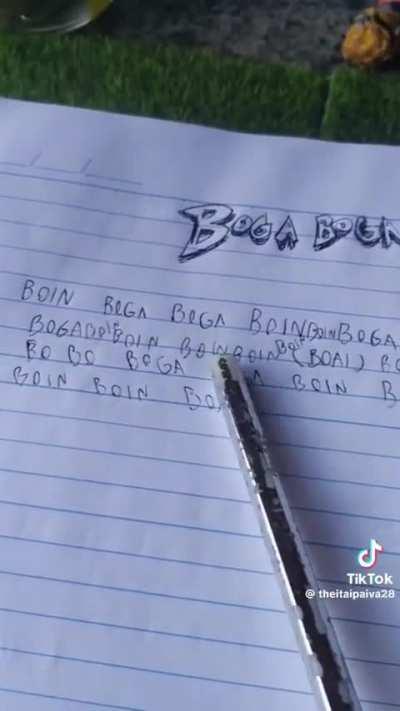 BOGA BOGA
BOIN BOGA BOGA BOIN BOIN BOGA
BOGABOIN BOIN BOIN BOIN BOIN (BOAI) BO
BO BO BOGA
BOIN BOIN BO A BOIN B
TikTok
@ theitaipaiva28